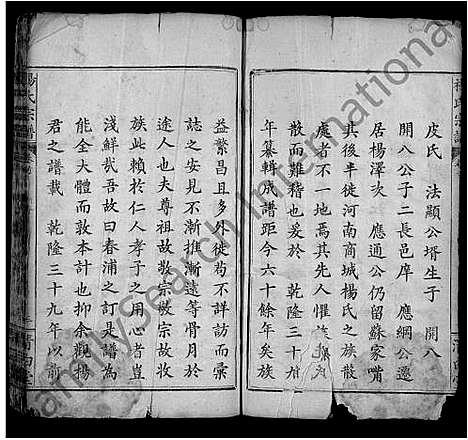 皮氏 法顯公壻生子 開八
開八公子二長邑庠 應綱公遷
居楊澤㳄 應通公仍留蘇家嘴
其後半徙河南商城楊氏之族散
處者不一地焉其先人懼族
散而難稽也爰於 乾隆三十九
年纂輯成譜距今六十餘年矣族
益繁昌且多外徙苟不詳訪而彙
誌之安見不漸推漸遠等骨月於
途人也夫尊祖故敬宗敬宗故收
族此賴於仁人孝子之用心者豈
淺鮮哉吾故曰春浦之訂是譜為
能全大體而敦本計也抑余觀楊
君之譜載 乾隆三十九年以前
楊氏宗譜
FamilySearch International